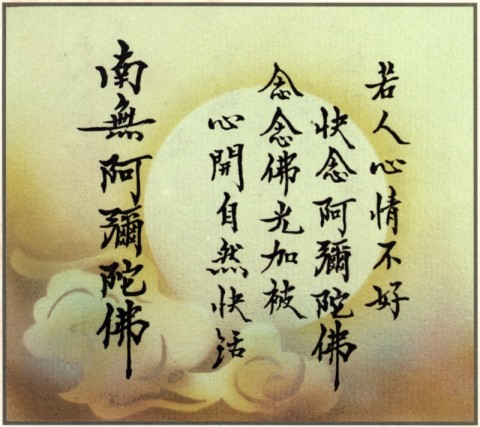 若人心情不好
快念阿彌陀佛
念念佛光加被
心開自然快活
南無阿彌陀佛